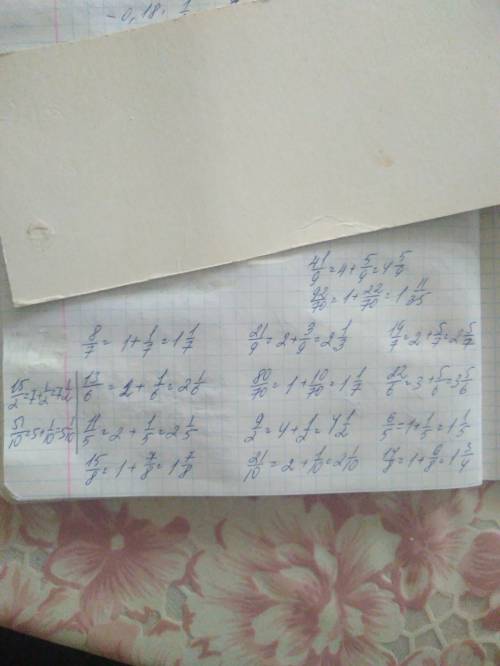 -0,18.
41/9 = 4 + 5/9 = 4 5/9
92/70 = 1 + 22/70 = 1 11/35
8/7 = 1 + 1/7 = 1 1/7
21/9 = 2 + 3/9 = 2 1/3
19/7 = 2 + 5/7 = 2 5/7
15/2 = 7 + 1/2 = 7 1/2
13/6 = 2 + 1/6 = 2 1/6
80/70 = 1 + 10/70 = 1 1/7
= 3 + 5/6 = 3 5/6
51/10 = 5 + 1/10 = 5 1/10
11/5 = 2 + 1/5 = 2 1/5
9/2 = 4 + 1/2 = 4 1/2
6/5 = 1 + 1/5 = 1 1/5
15/8 = 1 + 7/8 = 1 7/8
21/10 = 2 + 1/10 = 2 1/10
= 1 + 6/8 = 1 3/4